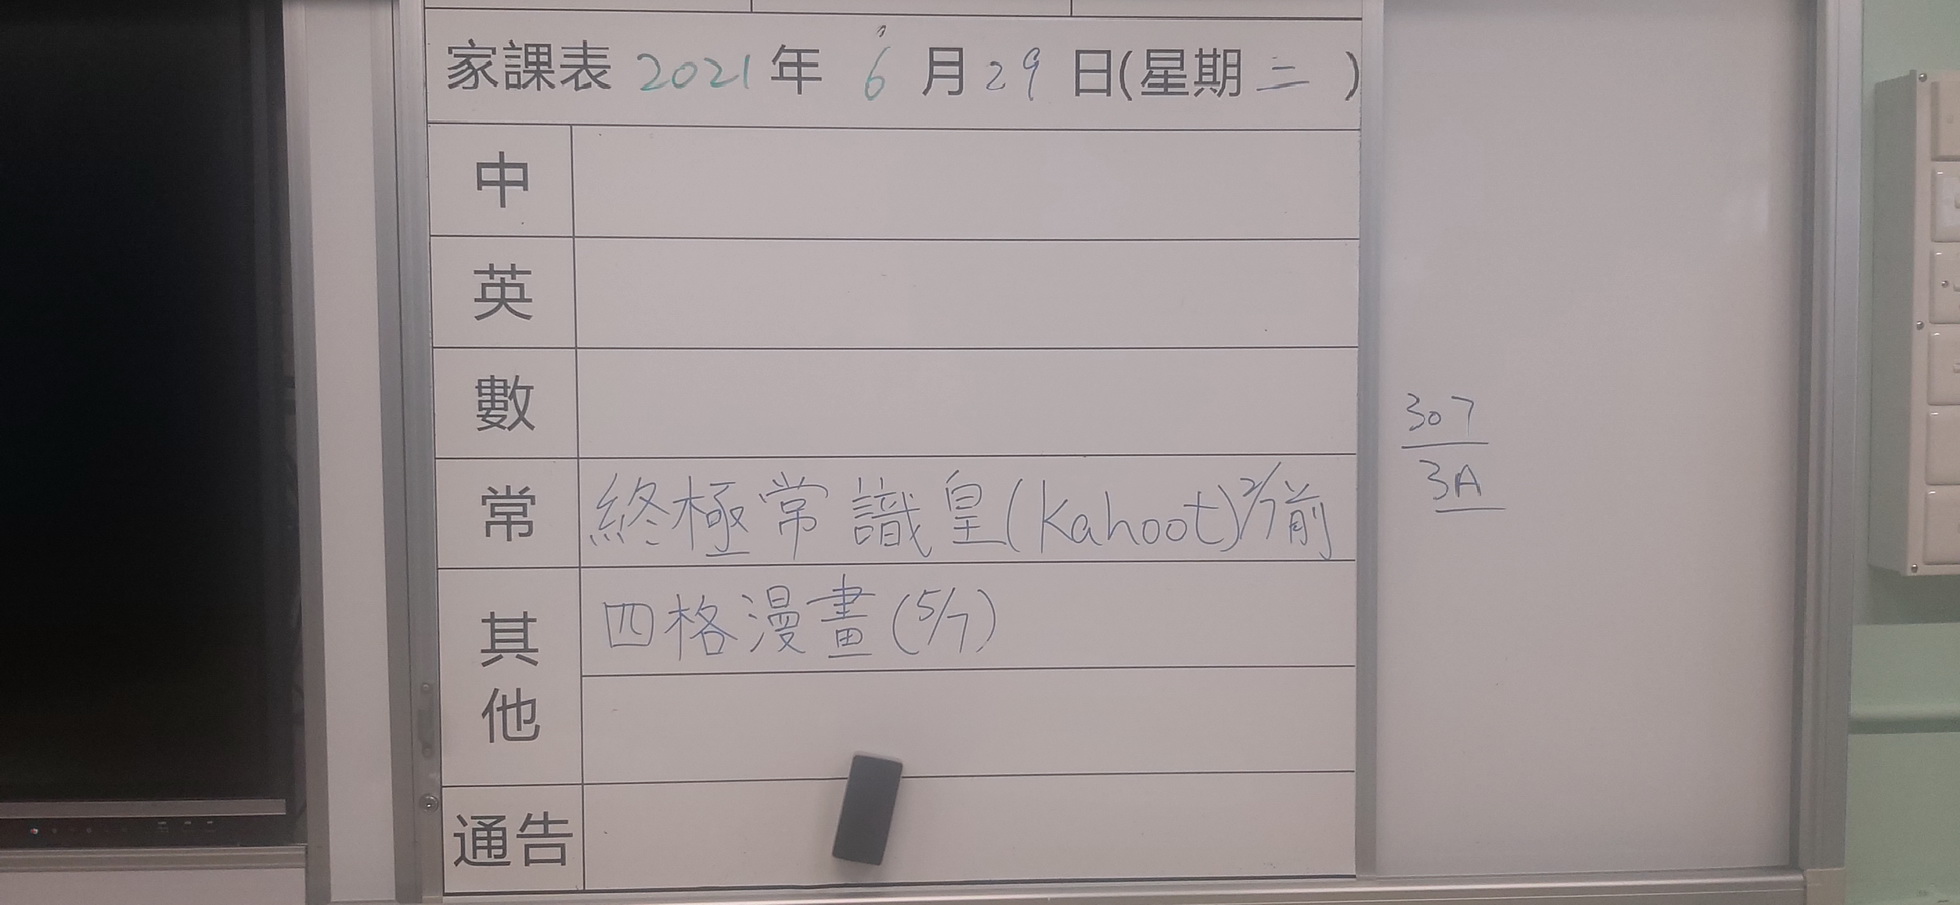 家課表 2021 年 6 月 29 日(星期 二 )
中
英
數
常 終極常識皇(Kahoot)2/7前
其他 四格漫畫(5/7)
通告
307
3A